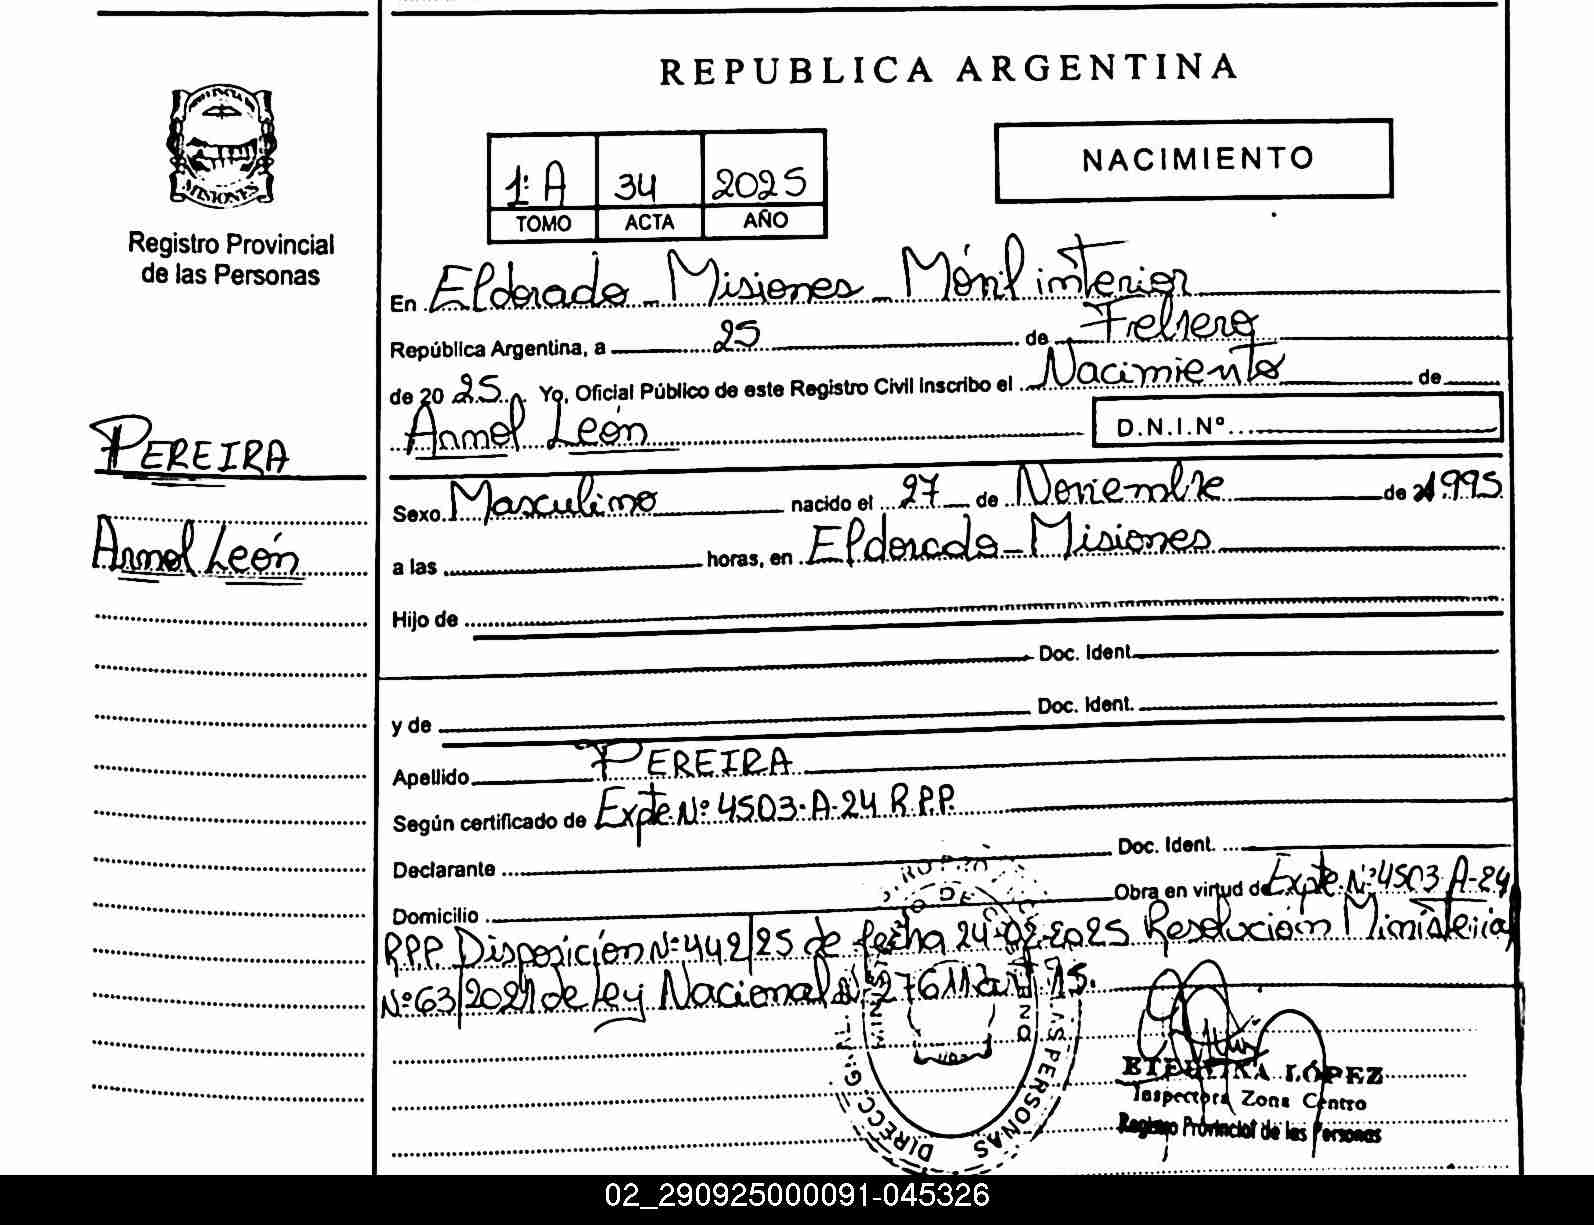 REPUBLICA ARGENTINA
PROVINCIA DE
MISIONES
Registro Provincial
de las Personas
1ª A 34 2025
TOMO ACTA AÑO
NACIMIENTO
En Eldorado - Misiones - Móvil interior
República Argentina, a 25 de Febrero
de 20 25. Yo, Oficial Público de este Registro Civil inscribo el Nacimiento de
Anmol León D.N.I.Nº
PEREIRA
Anmol León
Sexo Masculino nacido el 27 de Noviembre de 1995
a las horas, en Eldorado - Misiones
Hijo de
Doc. Ident.
y de Doc. Ident.
Apellido PEREIRA
Según certificado de Expte. Nº 4503-A-24 R.P.P.
Declarante Doc. Ident.
Domicilio Obra en virtud de Expte. Nº 4503 A-24
RPP Disposición Nº 442/25 de fecha 24-02-2025 Resolución Ministerial
Nº 63/2021 de ley Nacional Nº 27611 art 15.
DIRECC. GRAL. PERSONAS
LÓPEZ
Inspectora Zona Centro
Registro Provincial de las Personas
02_290925000091-045326